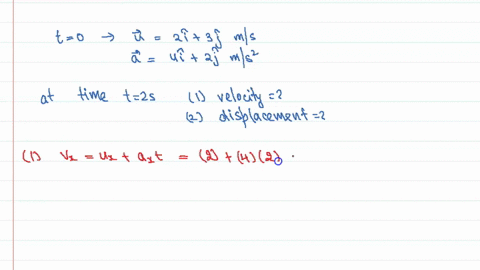 t=0 → u⃗ = 2î + 3ĵ m/s
a⃗ = 4î + 2ĵ m/s²
at time t=2s (1) velocity=?
(2) displacement=?
(1) vₓ = uₓ + aₓt = (2) + (4)(2)